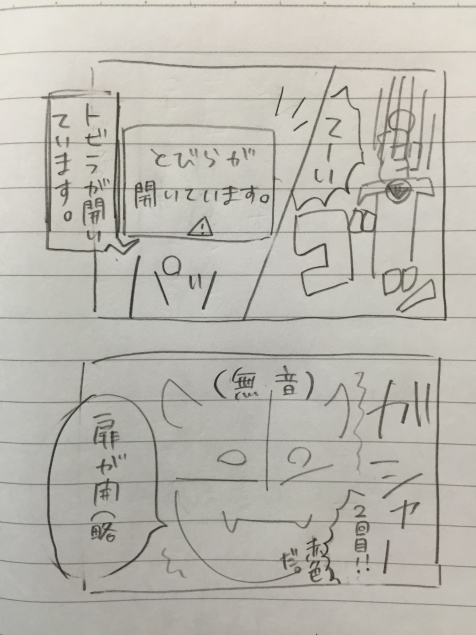 てーい
とびらが
開いています。
トビラが開い
ています。
ガシャー
2回目!!
赤色
だ。
(無音)
扉が開(略